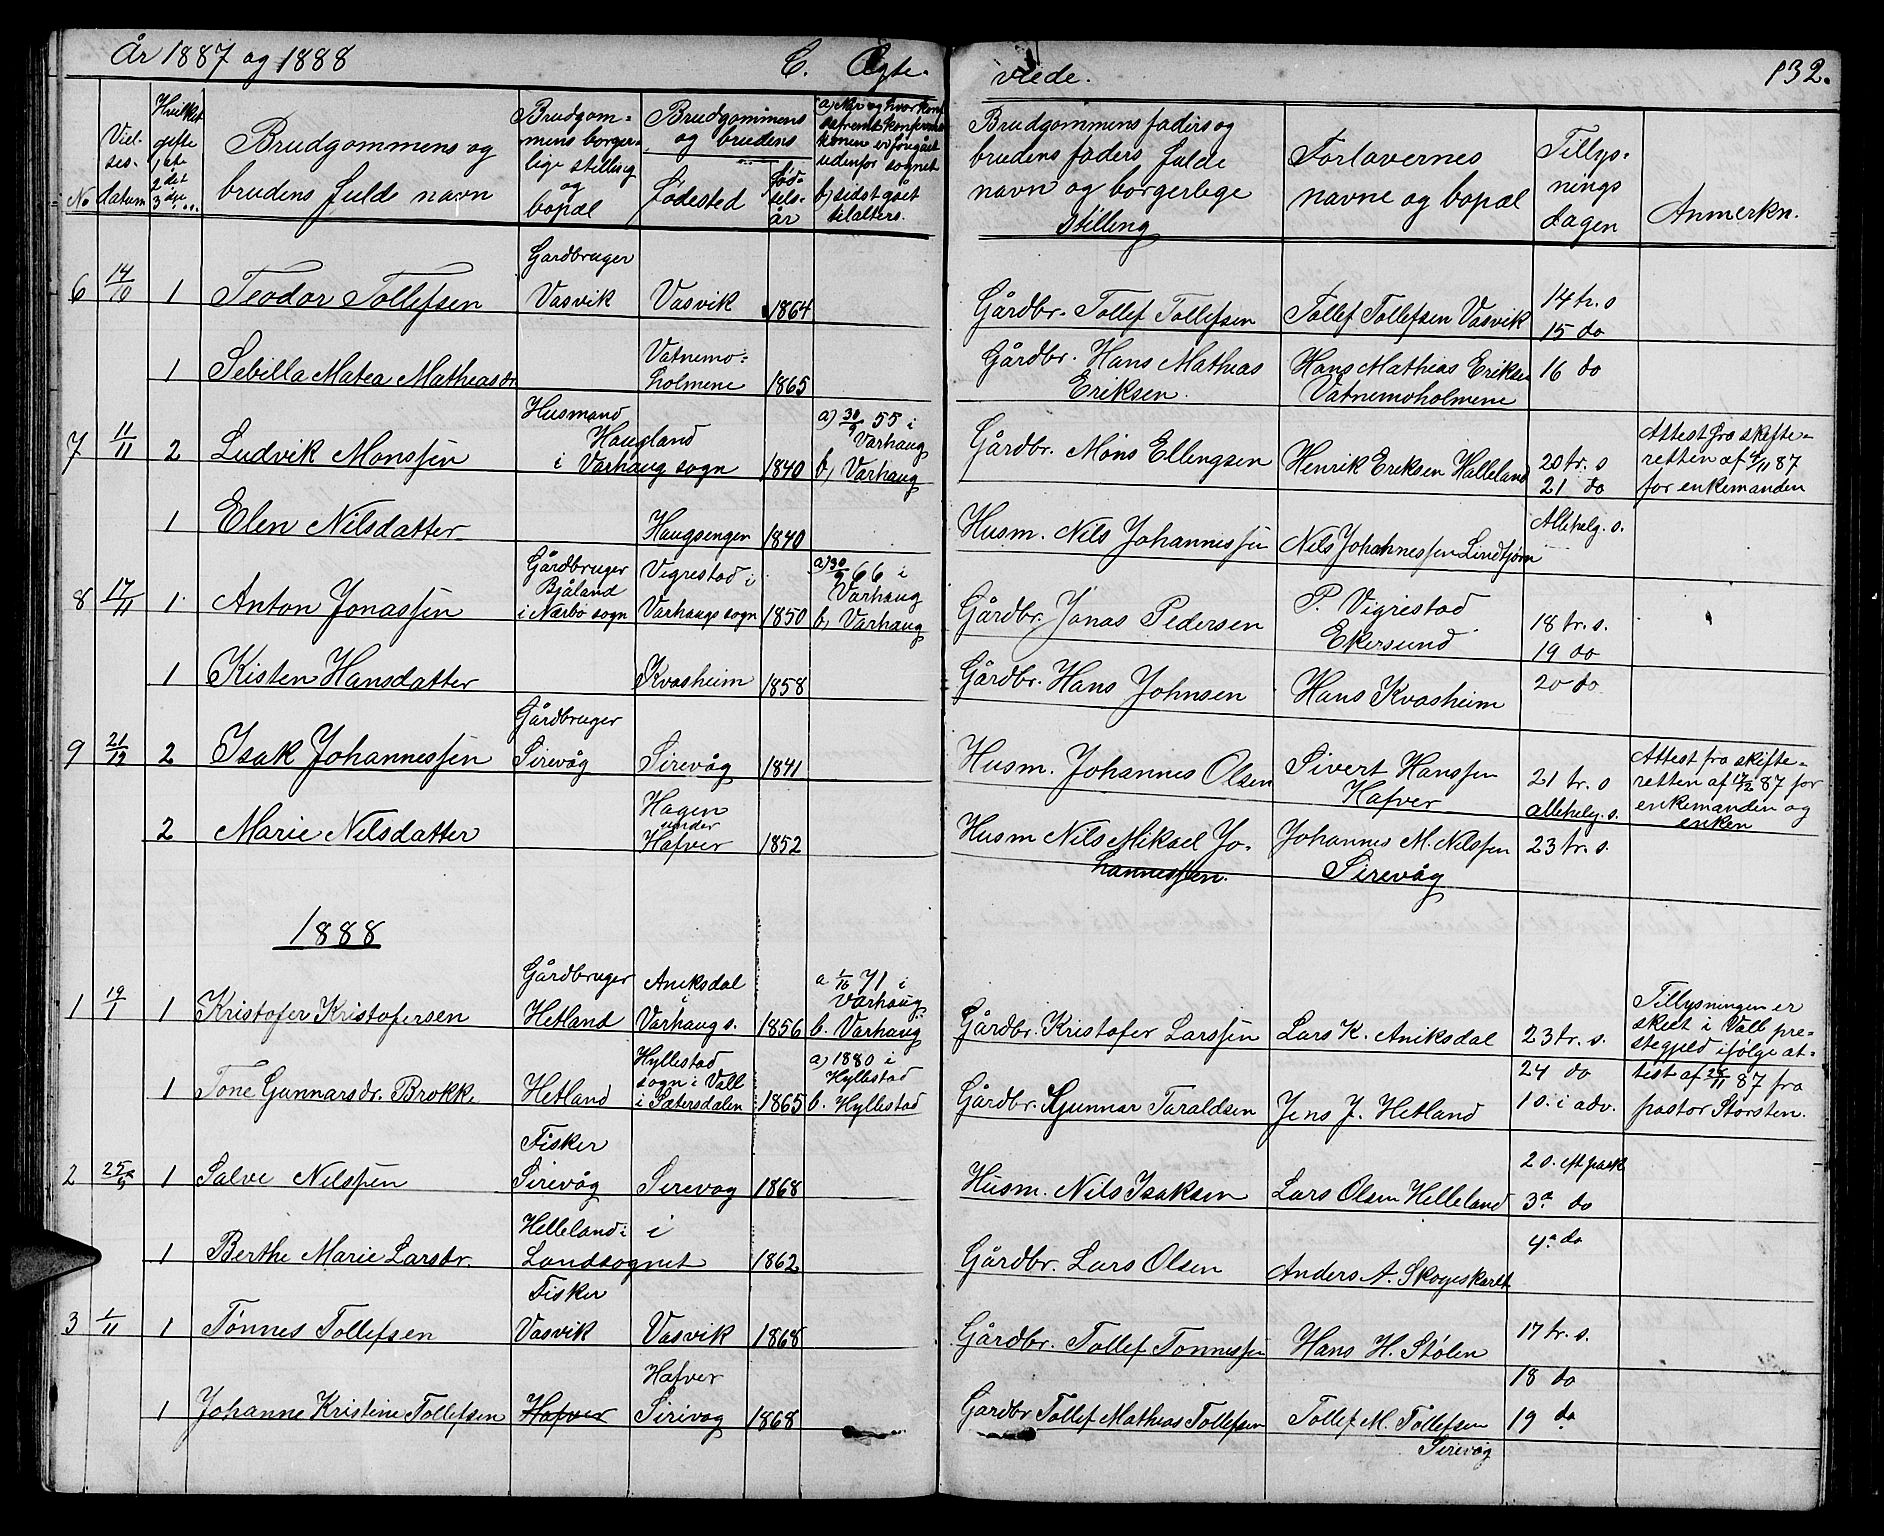 År 1887 og 1888 C. Ægte- viede. 132.
No Viel- ses- datum Hvilket gifte 1ste 2det 3dje... Brudgommens og brudens fulde navn Brudgom- mens borger- lige stilling og bopæl Brudgommens og brudens Fødested Fød- sels- år b) sidst gået til alters. Brudgommens faders og brudens faders fulde navn og borgerlige stilling Forlovernes navne og bopæl Tillys- nings dagen Anmerkn.
6 14/10 1 Teodor Tollefsen Gardbruger Vasvik Vasvik 1864 Gårdbr. Tollef Tollefsen Tollef Tollefsen Vasvik 14 tr. s 15 do
1 Sebilla Matea Mathiasdr Vatnemo- holmene 1865 Gårdbr. Hans Mathias Eriksen. Hans Mathias Eriksen Vatnemoholmene 16 do
7 11/11 2 Ludvik Monssen Husmand Haugland i Varhaug sogn 1840 a) 30/9 55 i Varhaug b) Varhaug Gårdbr. Mons Ellengsen Henrik Eriksen Halleland 20 tr. s 21 do Attest fra skifte- retten af 4/11 87 for enkemanden
1 Elen Nilsdatter Haugsengen 1840 Husm. Nils Johannessen Nils Johannessen Lindtjørn Allehelg. s.
8 17/11 1 Anton Jonassen Gårdbruger Bjåland i Nærbø sogn Vigrestad i Varhaugs sogn 1850 a) 30/9 66 i Varhaug b) Varhaug Gårdbr. Jonas Pedersen P. Vigrestad Ekersund 18 tr. s. 19 do
1 Kisten Hansdatter Kvasheim 1858 Gårdbr. Hans Johnsen Hans Kvasheim 20 do
9 21/12 2 Isak Johannessen Gårdbruger Sirevåg Sirevåg 1841 Husm. Johannes Olsen Sivert Hanssen Hafver 21 tr. s allehelg. s. Attest fra skifte- retten af 17/12 87 for enkemanden og enken
2 Marie Nilsdatter Hagen under Hafver 1852 Husm Nils Mikael Jo- hannessen. Johannes M. Nilssen Sirevåg 23 tr. s.
1888
1 19/1 1 Kristofer Kristofersen Gårdbruger Hetland Aniksdal i Varhaug s. 1856 a 1/10 71 i Varhaug b. Varhaug Gårdbr. Kristofer Larssen Lars K. Aniksdal 23 tr. s. Tillysningen er skeet i Vall pre- stegjeld ifølge at- test af 28/11 87 fra pastor Storsten.
1 Tone Gunnarsdr. Brokk Hetland Hyllestad sogn i Vall i Sætersdalen 1865 a) 1880 i Hyllestad b. Hyllestad Gårdbr. Gunnar Taraldsen Jens J. Hetland 24 do 1 s. i adv.
2 25/5 1 Salve Nilssen Fisker Sirevåg Sirevåg 1868 Husm. Nils Isaksen Lars Olsen Helleland 2 s. eft pask 3a do
1 Berthe Marie Larsdr. Helleland i Landsognet 1862 Gårdbr. Lars Olsen Anders A. Skogeskaret 4a do
3 1/11 1 Tønnes Tollefsen Fisker Vasvik Vasvik 1868 Gårdbr. Tollef Tønnessen Hans H. Stølen 17 tr. s. 18 do
1 Johanne Kristine Tollefsen Hafver Hafver Sirevåg 1868 Gårdbr Tollef Mathias Tollefsen Tollef M. Tollefsen Sirevåg 19 do